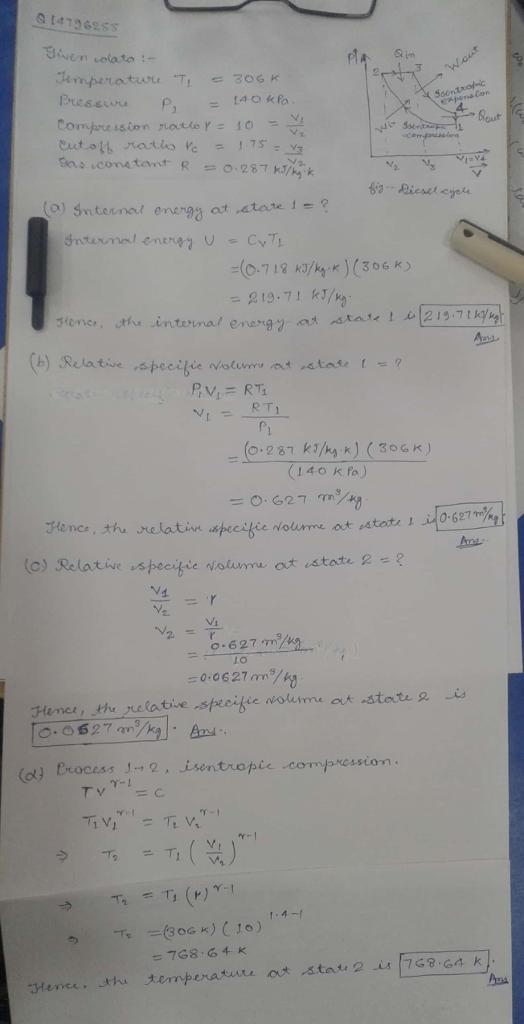 Q14796255
Given data :-
Temperature T₁ = 306 K
Pressure P₁ = 140 kPa.
Compression ratio r = 10 = V₁/V₂
Cutoff ratio rc = 1.75 = V₃/V₂
Gas constant R = 0.287 kJ/kg·K
P↑ Qin
2 3 Wout
Isentropic expansion
4
Qout
Win Isentropic compression
1
V₂ V₃ V₁=V₄
V
fig:- Diesel cycle
(a) Internal energy at state 1 = ?
Internal energy U = CvT₁
=(0.718 kJ/kg·K)(306K)
= 219.71 kJ/kg.
Hence, the internal energy at state 1 is 219.71 kJ/kg
Ans.
(b) Relative specific volume at state 1 = ?
P₁V₁ = RT₁
V₁ = RT₁/P₁
= (0.287 kJ/kg·K)(306K)/(140 kPa)
= 0.627 m³/kg.
Hence, the relative specific volume at state 1 is 0.627 m³/kg
Ans.
(c) Relative specific volume at state 2 = ?
V₁/V₂ = r
V₂ = V₁/r
= 0.627 m³/kg/10
= 0.0627 m³/kg.
Hence, the relative specific volume at state 2 is
0.0627 m³/kg. Ans.
(d) Process 1→2, isentropic compression.
TV^(γ-1) = C
T₁V₁^(γ-1) = T₂V₂^(γ-1)
⇒ T₂ = T₁(V₁/V₂)^(γ-1)
⇒ T₂ = T₁(r)^(γ-1)
⇒ T₂ = (306K)(10)^(1.4-1)
= 768.64 K
Hence, the temperature at state 2 is 768.64 K.
Ans